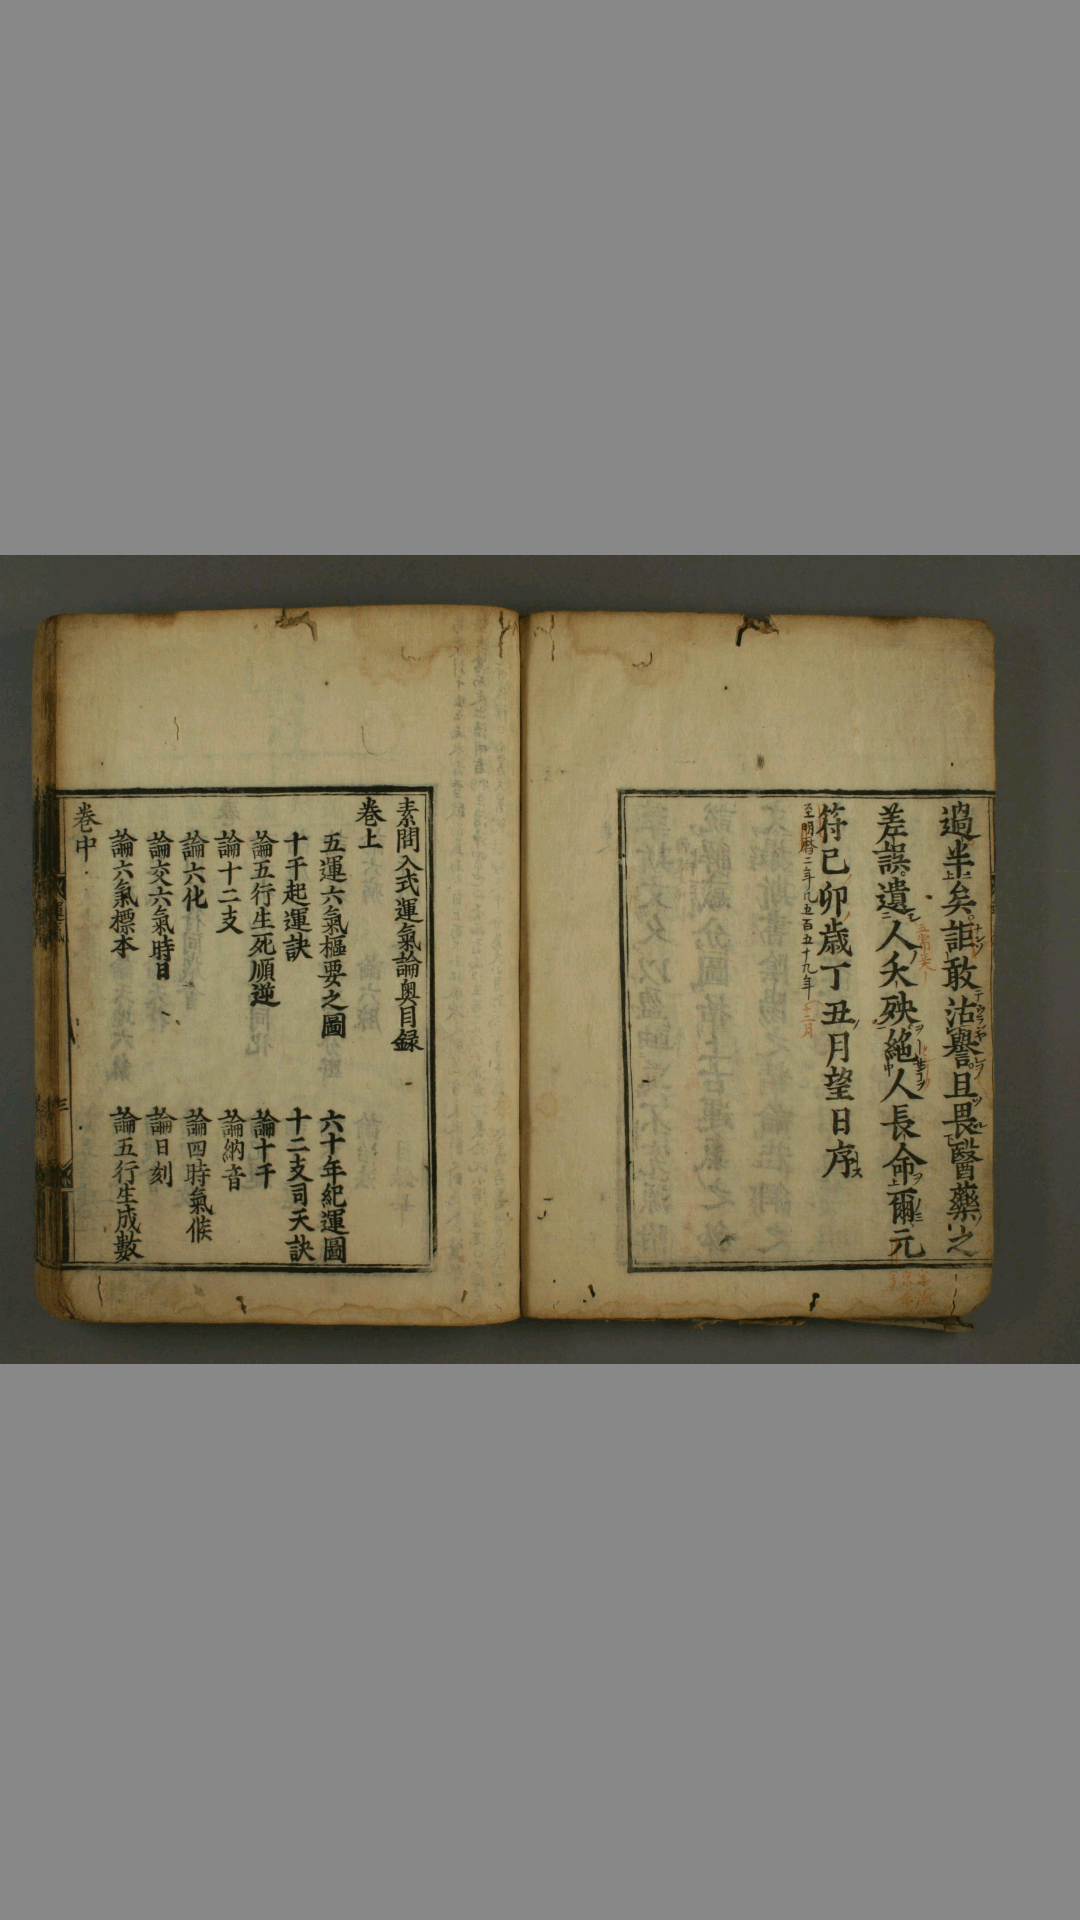 過半矣詎敢沽譽且畏醫藥之
差誤遺人夭殃絕人長命爾元
符己卯歲丁丑月望日序
至明暦二年凡五百五十九年
素問入式運氣論奧目錄
卷上
五運六氣樞要之圖 六十年紀運圖
十干起運訣 十二支司天訣
論五行生死順逆 論十干
論十二支 論納音
論六化 論四時氣候
論交六氣時日 論日刻
論六氣標本 論五行生成數
卷中